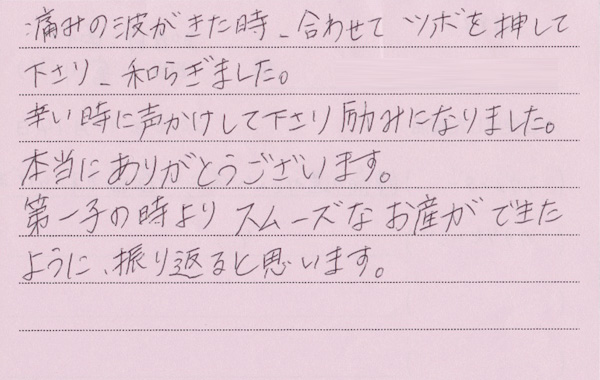 痛みの波がきた時、合わせて ツボを押して
下さり、和らぎました。
辛い時に声かけして下さり励みになりました。
本当にありがとうございます。
第一子の時より スムーズな お産が できた
ように、振り返ると思います。